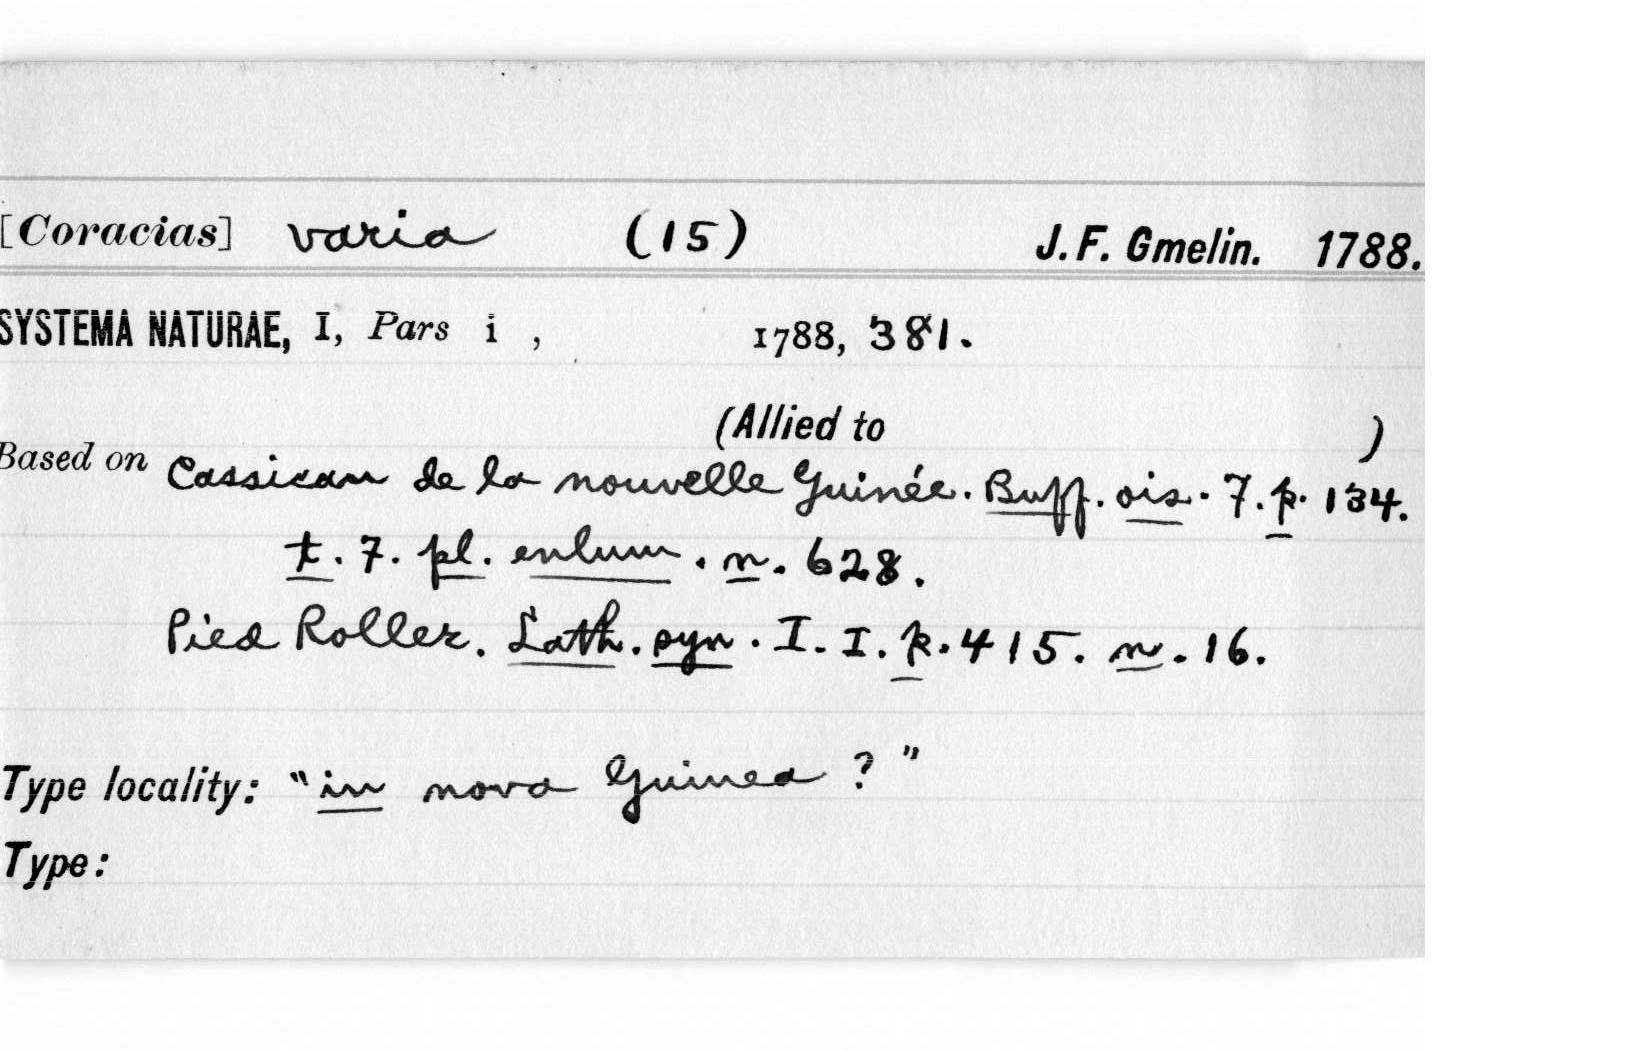 [Coracias] varia (15) J. F. Gmelin. 1788.
SYSTEMA NATURAE, I, Pars i , 1788, 381.
(Allied to )
Based on Cassican de la nouvelle Guinée. Buff. ois. 7. p. 134.
t. 7. pl. enlum. n. 628.
Pied Roller. Lath. syn. I. I. p. 415. n. 16.
Type locality: "in nova Guinea ? "
Type: